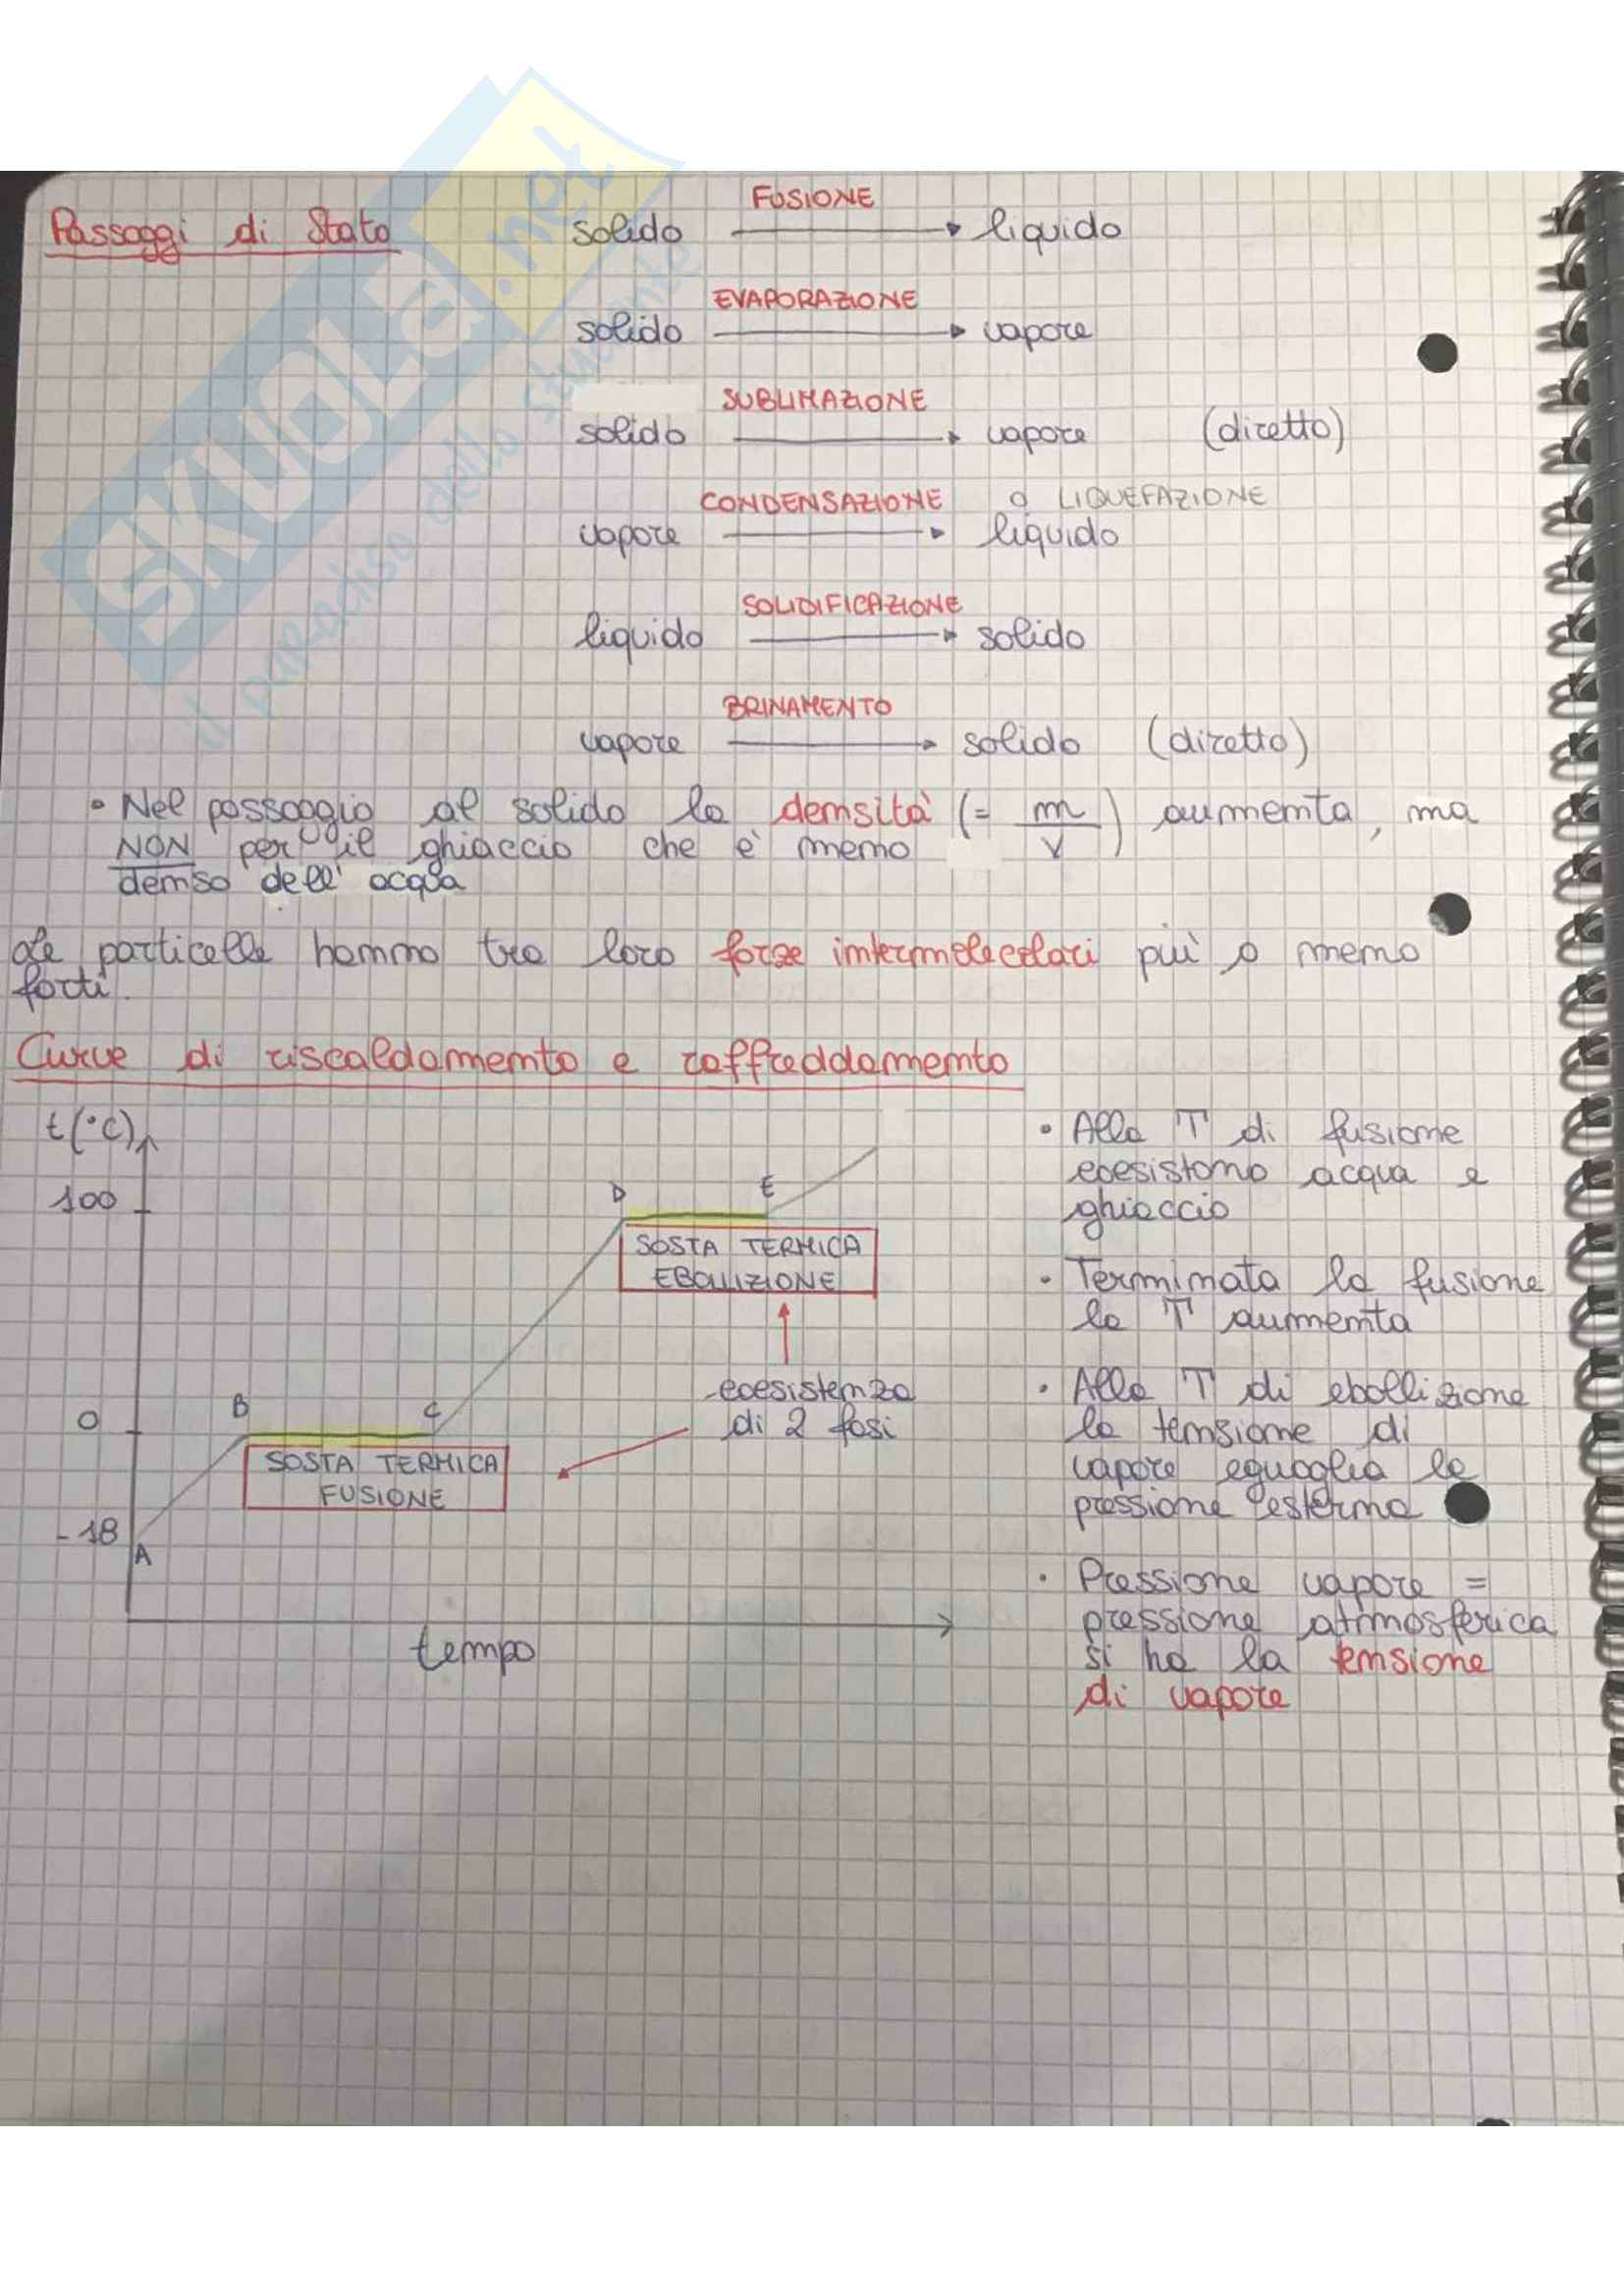 Passaggi di Stato
FUSIONE
solido → liquido
EVAPORAZIONE
solido → vapore
SUBLIMAZIONE
solido → vapore (diretto)
CONDENSAZIONE o LIQUEFAZIONE
vapore → liquido
SOLIDIFICAZIONE
liquido → solido
BRINAMENTO
vapore → solido (diretto)
• Nel passaggio al solido la densità (= m/V) aumenta, ma
NON per il ghiaccio che è meno
denso dell'acqua
Le particelle hanno tra loro forze intermolecolari più o meno
forti.
Curve di riscaldamento e raffreddamento
t(°C)
100
D
E
SOSTA TERMICA
EBOLLIZIONE
coesistenza
di 2 fasi
0
B
C
SOSTA TERMICA
FUSIONE
-18
A
tempo
• Alla T di fusione
coesistono acqua e
ghiaccio
• Terminata la fusione
la T aumenta
• Alla T di ebollizione
la tensione di
vapore eguaglia la
pressione esterna
• Pressione vapore =
pressione atmosferica
si ha la tensione
di vapore
SKUOLA.net
il paradiso dello studente